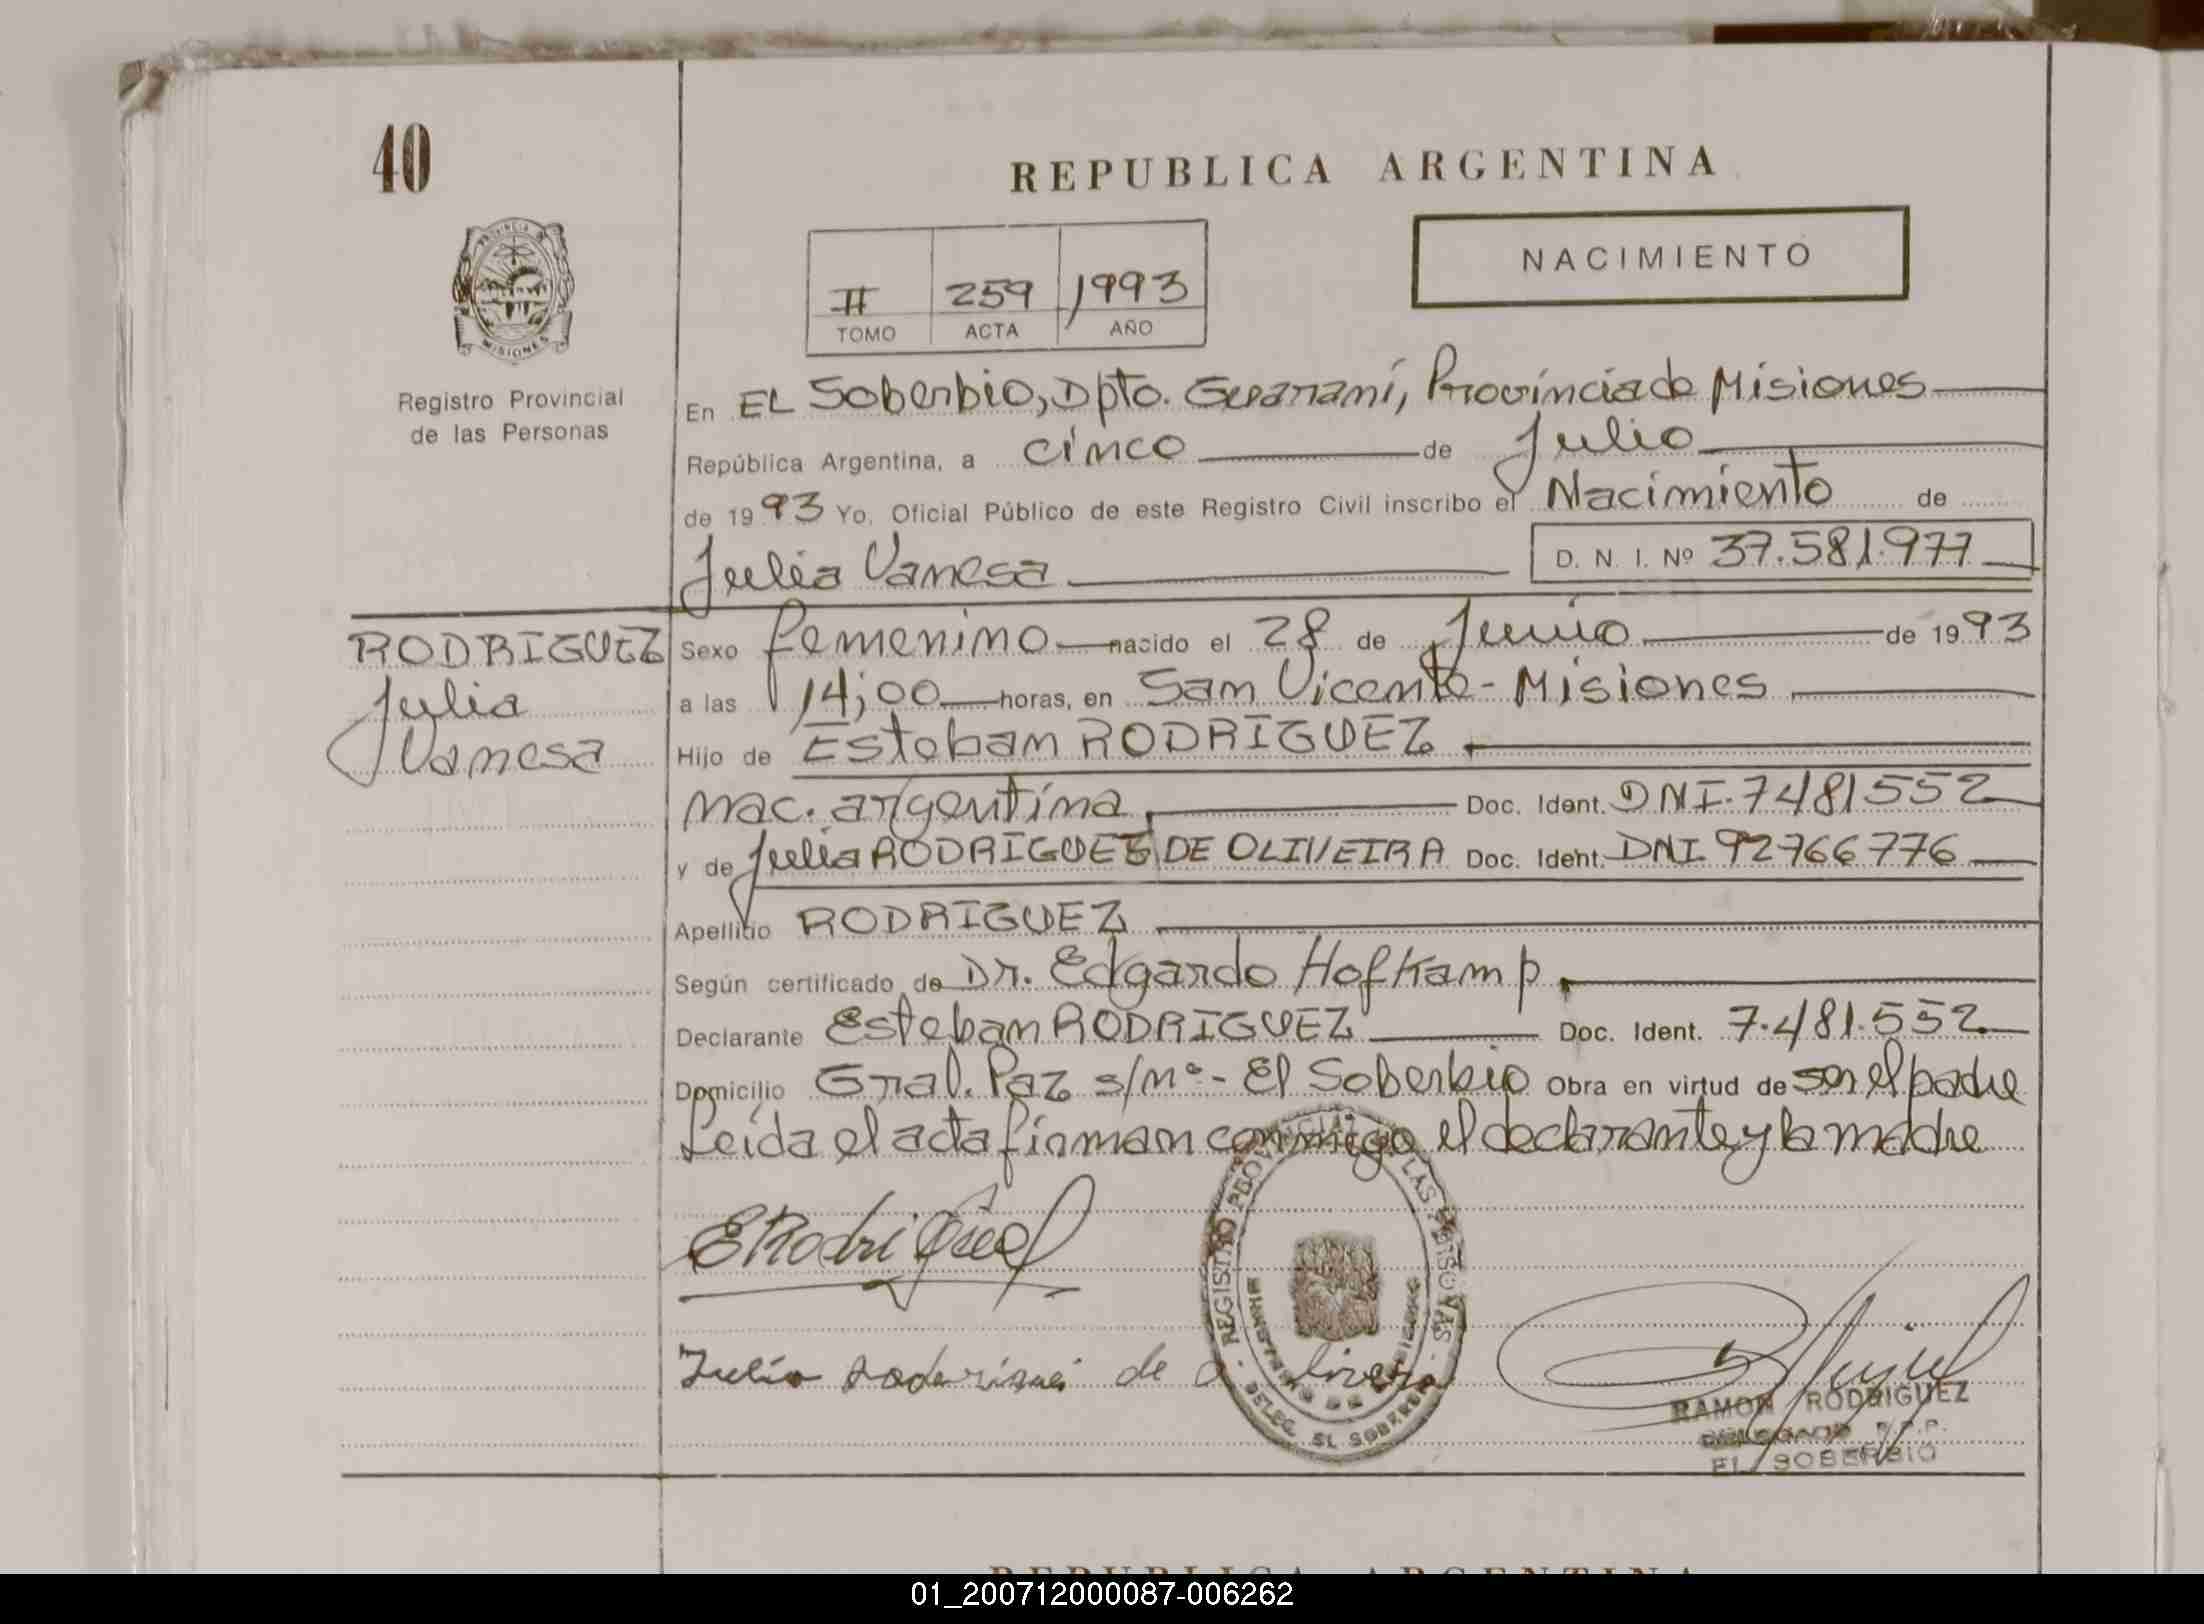 40
REPUBLICA ARGENTINA
PROVINCIA DE
MISIONES
Registro Provincial
de las Personas
NACIMIENTO
II 259 1993
TOMO ACTA AÑO
En EL Soberbio, Dpto. Guaraní, Provincia de Misiones
República Argentina, a cinco de Julio
de 1993 Yo, Oficial Público de este Registro Civil inscribo el Nacimiento de
Julia Vanesa D. N. I. Nº 37.581.977
RODRIGUEZ
Julia
Vanesa
Sexo femenino nacido el 28 de Junio de 1993
a las 14;00 horas, en San Vicente - Misiones
Hijo de Esteban RODRIGUEZ
nac. argentina, Doc. Ident. DNI. 7481552
y de Julia RODRIGUEZ DE OLIVEIRA Doc. Ident. DNI 92766776
Apellido RODRIGUEZ
Según certificado de Dr. Edgardo Hofkamp
Declarante Esteban RODRIGUEZ Doc. Ident. 7.481.552
Domicilio Gral. Paz s/nº - El Soberbio Obra en virtud de ser el padre
Leída el acta firman conmigo el declarante y la madre
REGISTRO PROVINCIAL DE LAS PERSONAS
DELEG. EL SOBERBIO
E Rodriguez
RAMON RODRIGUEZ
DELEGADO R.P.P.
EL SOBERBIO
REPUBLICA ARGENTINA
01_200712000087-006262